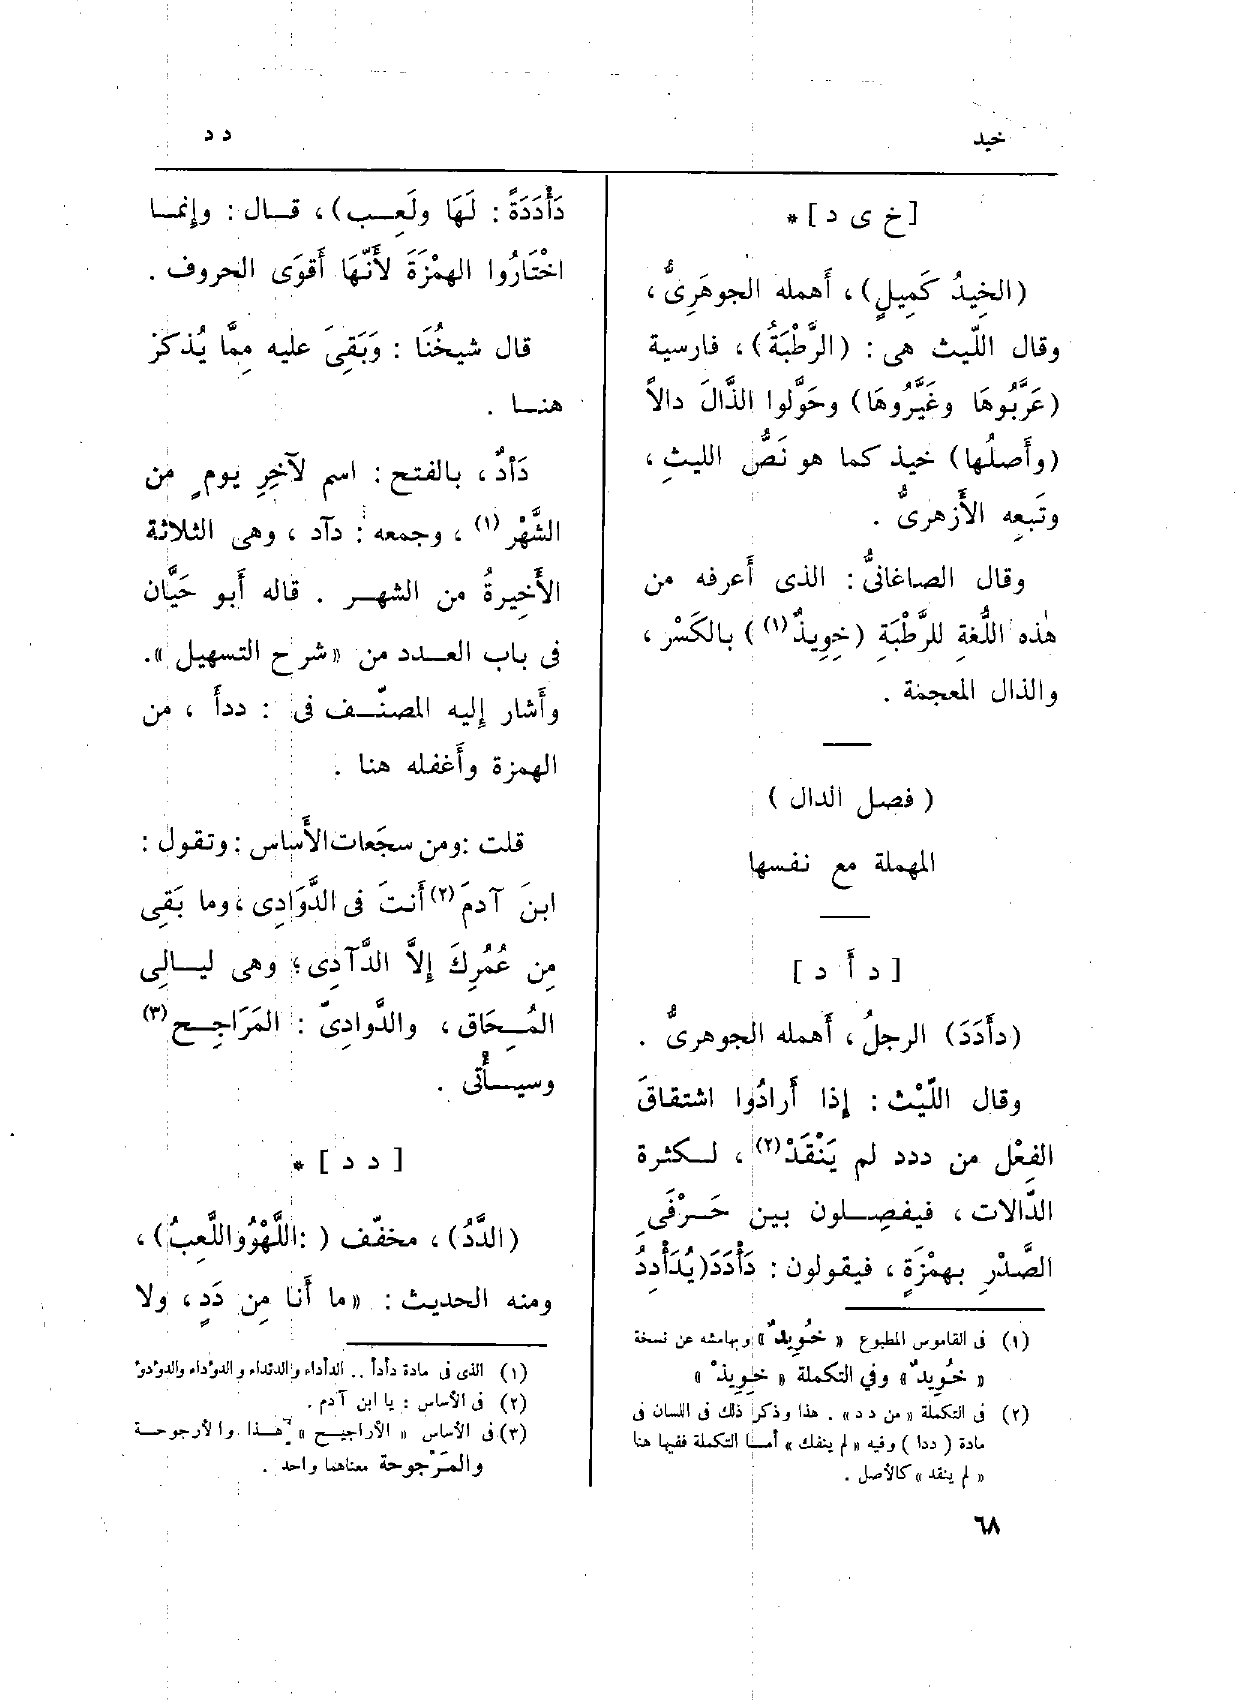 خيد
د د
[ خ ى د ] *
(الخِيدُ كَمِيلٍ) ، أَهمله الجوهَرِىُّ ،
وقال اللّيث هى : (الرَّطْبَةُ) ، فارسية
(عَرَّبُوهَا وغَيَّرُوهَا) وحَوَّلوا الذَّالَ دالاً
(وأَصلُها) خيذ كما هو نَصُّ الليثِ ،
وتَبعِه الأَزهرىُّ .
وقال الصاغانىُّ : الذى أَعرفه من
هٰذه اللُّغةِ للرَّطْبَةِ (خِوِيذٌ(١)) بالكَسْر ،
والذال المعجمة .
( فصل الدال )
المهملة مع نفسها
[ د أَ د ]
(دأَدَدَ) الرجلُ ، أَهمله الجوهرىُّ .
وقال اللَّيْث : إِذا أَرادُوا اشتقاقَ
الفِعْل من ددد لم يَنْقَدْ(٢) ، لـكثرة
الدَّالات ، فيفصِـلون بين حَـرْفَىِ
الصَّدْرِ بهمْزَةٍ ، فيقولون : دَأْدَدَ(يُدَأْدِدُ
(١) فى القاموس المطبوع « خُوِيدٌ » وبهامشه عن نسخة
« خُوِيدٌ » وفي التكملة « خِوِيذْ »
(٢) فى التكملة « من دد » . هذا وذكر ذلك فى اللسان فى
مادة ( ددا ) وفيه « لم ينفك » أمـا التكملة ففيها هنا
« لم ينقد » كالأصل .
٦٨
دَأْدَدَةً : لَهَا ولَعِـب) ، قـال : وإِنمـا
اخْتَارُوا الهمْزَةَ لأَنَّهَا أَقوَى الحروف .
قال شيخُنَا : وَبَقِىَ عليه مِمَّا يُذكرَ
هنـا .
دَأدٌ ، بالفتح : اسم لآخِرِ يومٍ من
الشَّهْر(١) ، وجمعه : دآد ، وهى الثلاثة
الأَخِيرةُ من الشهـر . قاله أَبو حَيَّان
فى باب العـدد من «شرح التسهيل » .
وأَشار إِليه المصنّـف فى : ددأَ ، من
الهمزة وأَغفله هنا .
قلت :ومن سجَعات الأَساس : وتقول :
ابنَ آدمَ(٢) أَنتَ فى الدَّوَادِى ، وما بَقِى
مِن عُمُرِكَ إِلاَّ الدَّآدِى ؛ وهى ليـالِى
المُـحَاق ، والدَّوادِىّ : المَرَاجِـح(٣)
وسيـأْتى .
[ د د ] *
(الدَّدُ) ، مخفّف ( :اللَّهْوُ واللَّعِبُ) ،
ومنه الحديث : « ما أَنا مِن دَدٍ ، ولا
(١) الذى فى مادة دأدأ .. الدأداء والدئداء و الدؤداء والدؤدؤ
(٢) فى الأساس : يا ابن آدم .
(٣) فى الأساس « الأراجيـح » هـذا والأرجوحـة
والمَرْجوحة معناهما واحد .